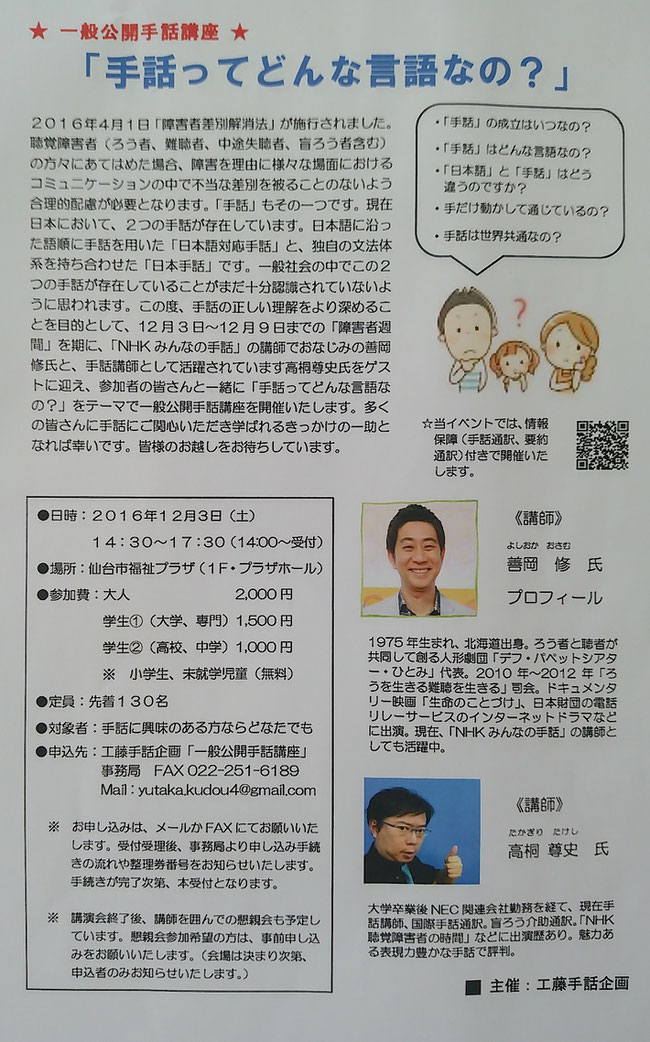 ★ 一般公開手話講座 ★
「手話ってどんな言語なの?」
2016年4月1日「障害者差別解消法」が施行されました。
聴覚障害者(ろう者、難聴者、中途失聴者、盲ろう者含む)
の方々にあてはめた場合、障害を理由に様々な場面における
コミュニケーションの中で不当な差別を被ることのないよう
合理的配慮が必要となります。「手話」もその一つです。現在
日本において、2つの手話が存在しています。日本語に沿っ
た語順に手話を用いた「日本語対応手話」と、独自の文法体
系を持ち合わせた「日本手話」です。一般社会の中でこの2
つの手話が存在していることがまだ十分認識されていないよ
うに思われます。この度、手話の正しい理解をより深めるこ
とを目的として、12月3日~12月9日までの「障害者週
間」を期に、「NHKみんなの手話」の講師でおなじみの善岡
修氏と、手話講師として活躍されています高桐尊史氏をゲス
トに迎え、参加者の皆さんと一緒に「手話ってどんな言語な
の?」をテーマで一般公開手話講座を開催いたします。多く
の皆さんに手話にご関心いただき学ばれるきっかけの一助と
なれば幸いです。皆様のお越しをお待ちしています。
・「手話」の成立はいつなの?
・「手話」はどんな言語なの?
・「日本語」と「手話」はどう
違うのですか?
・手だけ動かして通じているの?
・手話は世界共通なの?
?
☆当イベントでは、情報
保障(手話通訳、要約
通訳)付きで開催いた
します。
●日時:2016年12月3日(土)
14:30~17:30(14:00~受付)
●場所:仙台市福祉プラザ(1F・プラザホール)
●参加費:大人 2,000円
学生①(大学、専門)1,500円
学生②(高校、中学)1,000円
※ 小学生、未就学児童(無料)
●定員:先着130名
●対象者:手話に興味のある方ならどなたでも
●申込先:工藤手話企画「一般公開手話講座」
事務局 FAX 022-251-6189
Mail:yutaka.kudou4@gmail.com
※ お申し込みは、メールかFAXにてお願いいた
します。受付受理後、事務局より申し込み手続
きの流れや整理券番号をお知らせいたします。
手続きが完了次第、本受付となります。
※ 講演会終了後、講師を囲んでの懇親会も予定し
ています。懇親会参加希望の方は、事前申し込
みをお願いいたします。(会場は決まり次第、
申込者のみお知らせいたします。)
《講師》
よしおか おさむ
善岡 修 氏
プロフィール
1975年生まれ、北海道出身。ろう者と聴者が
共同して創る人形劇団「デフ・パペットシアタ
ー・ひとみ」代表。2010年~2012年「ろ
うを生きる難聴を生きる」司会。ドキュメンタ
リー映画「生命のことづけ」、日本財団の電話
リレーサービスのインターネットドラマなど
に出演。現在、「NHKみんなの手話」の講師と
しても活躍中。
《講師》
たかぎり たけし
高桐 尊史 氏
大学卒業後NEC関連会社勤務を経て、現在手
話講師、国際手話通訳。盲ろう介助通訳。「NHK
聴覚障害者の時間」などに出演歴あり。魅力あ
る表現力豊かな手話で評判。
■ 主催:工藤手話企画